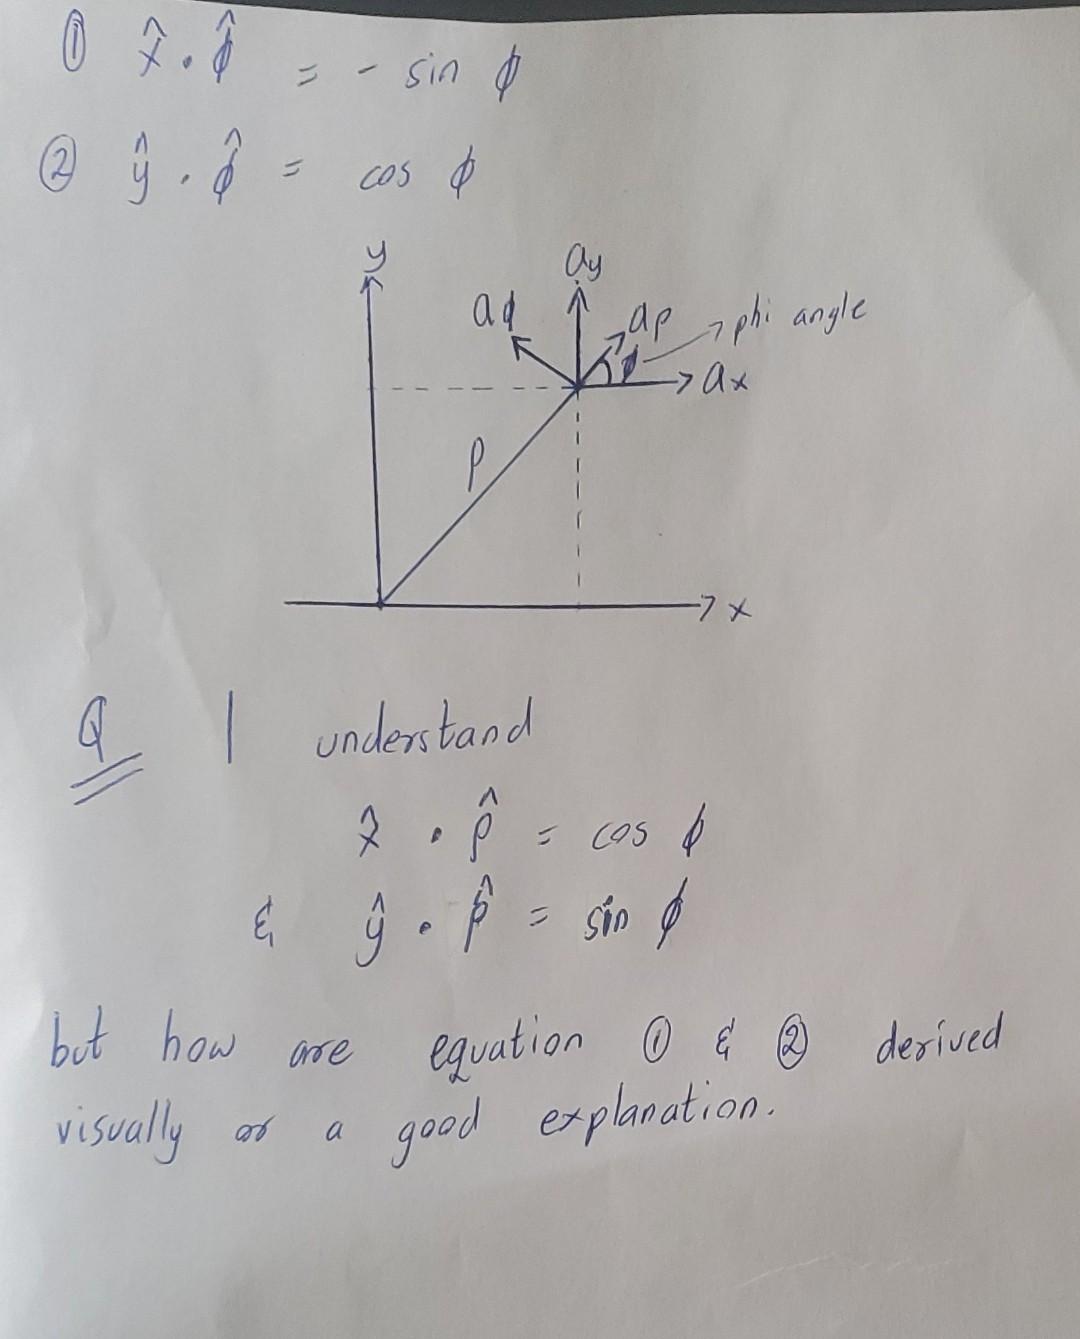 ① x̂ . ϕ̂ = - sin ϕ
② ŷ . ϕ̂ = cos ϕ
y
ay
aϕ
aρ
phi angle
ϕ
ax
ρ
x
Q I understand
x̂ . ρ̂ = cos ϕ
& ŷ . ρ̂ = sin ϕ
but how are equation ① & ② derived
visually or a good explanation.